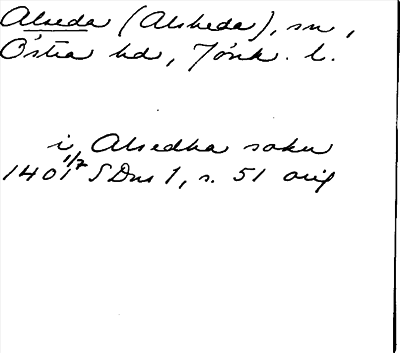 Alseda (Alsheda), sn,
Östra hd, Jönk. l.
i Alsedha sokn
1401 1/7 SDns 1, s. 51 orig